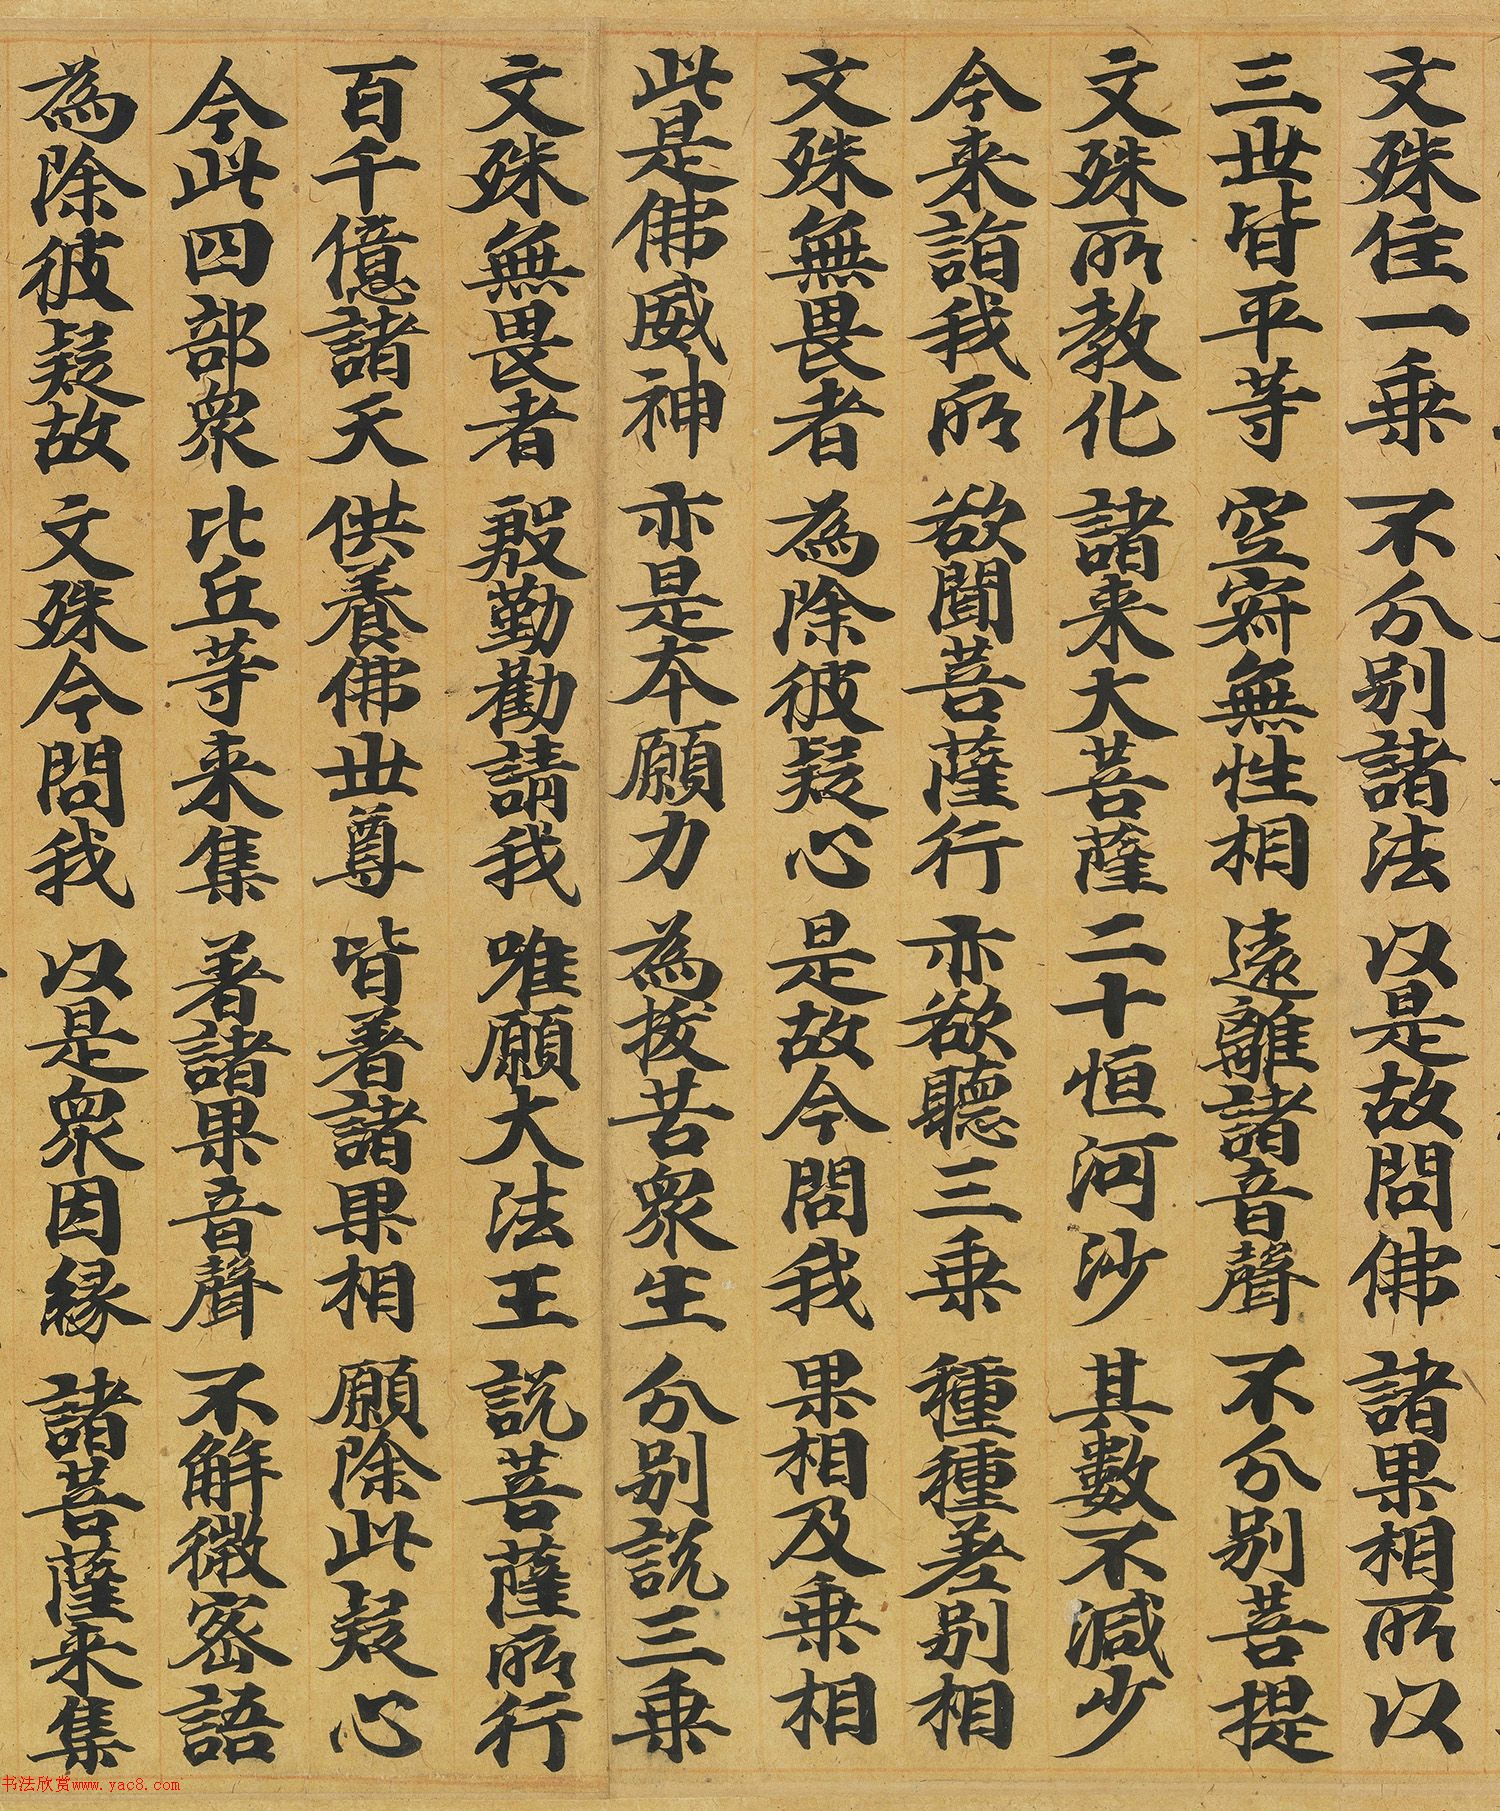 文殊住一乗不分別諸法以是故問佛諸果相所以
三世皆平等空寂無性相遠離諸音聲不分別菩提
文殊所教化諸来大菩薩二十恒河沙其數不減少
今来詣我所欲聞菩薩行亦欲聽三乗種種差別相
文殊無畏者為除彼疑心是故今問我果相及乗相
此是佛威神亦是本願力為拔苦衆生分別説三乗
文殊無畏者殷勤勸請我唯願大法王説菩薩所行
百千億諸天供養佛世尊皆著諸果相願除此疑心
今此四部衆比丘等来集著諸果音聲不解微密語
為除彼疑故文殊今問我以是衆因縁諸菩薩来集
书法欣赏www.yac8.com